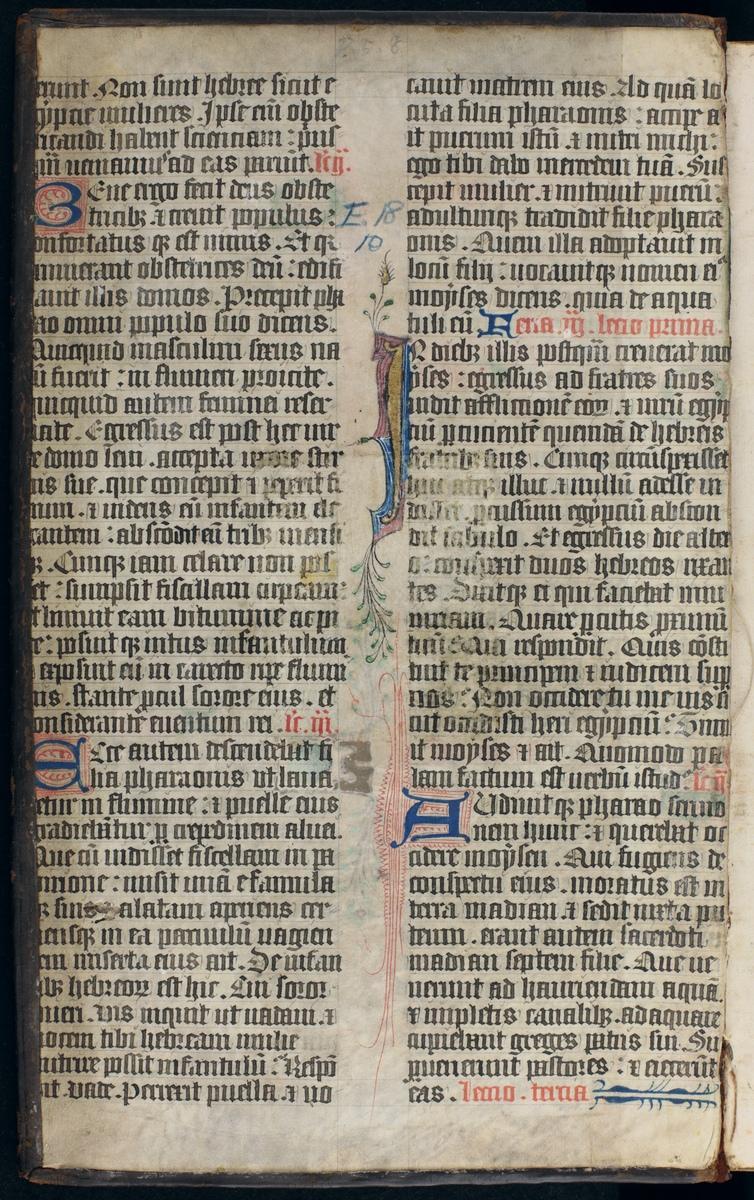 258
erunt. Non sunt hebree sicut e
gipcie mulieres. Ipse em̄ obste
tricandi habent scienciam: pus
qm̄ ueniamus ad eas pariūt. lc̄ ij.
Bene ergo fecit deus obste
tricibꝫ. ⁊ creuit populus:
onfortatus qꝫ est nimis. Et qꝛ
timuerant obstetrices deū: edifi
cauit illis domos. Precepit pha
rao omni populo suo dicens.
Quicquid masculini sexus na
tū fuerit: in flumen proicite.
quicquid autem feminei reser
uate. Egressus est post hec uir
de domo leui. accepta uxore stir
pis sue. que concepit ⁊ peperit fi
lium. ⁊ uidens eū infantem ele
gantem: abscōdit eū tribꝫ mensi
bꝫ. Cumqꝫ iam celare non pos
set: sumpsit fiscellam cirpeam:
⁊ liniuit eam bitumine ac pi
ce: posuit qꝫ intus infantulum
⁊ exposuit eū in carecto ripe flumi
nis. stante ꝓcul sorore eius. et
considerante euentum rei. lc̄. iij.
Ecce autem descendebat fi
lia pharaonis ut laua
retur in flumine: ⁊ puelle eius
gradiebātur ꝑ crepidinem aluei.
Que cū uidisset fiscellam in pa
pirione: misit unā e famula
bꝫ suis. alatam aperiens cer
nensqꝫ in ea paruulū uagien
tem miserta eius ait. De infan
tibꝫ hebreoꝝ est hic. Cui soror
pueri. uis inquit ut uadam. ⁊
uocem tibi hebream mulie
nutrire possit infantulū: Respō
dit. uade. Perrexit puella. ⁊ uo
E 18
10
cauit matrem eius. Ad quā lo
cuta filia pharaonis: accipe a
it puerum istū ⁊ nutri michi:
ego tibi dabo mercedem tuā. Sus
cepit mulier. ⁊ nutriuit puerū:
adultumqꝫ tradidit filie phara
onis. Quem illa adoptauit in
locū filij: uocauitqꝫ nomen ei᷒
moyses dicens. quia de aqua
tuli eū. Feria iij. lectio prima.
In diebꝫ illis postqm̄ creuerat mo
ises: egressus ad fratres suos
uidit afflictionē eoꝝ. ⁊ uirū egip
ciū ꝑcucientē quendā de hebreis
fratribꝫ suis. Cumqꝫ circūspexisset
huc atqꝫ illuc. ⁊ nullū adesse ui
disset. ꝑcussum egypciū abscon
dit sabulo. Et egressus die alter
o: conspexit duos hebreos rixan
tes. Dixitqꝫ ei qui faciebat iniu
riam. Quare ꝑcutis proximū
tuū: Qui respondit. Quis cōsti
tuit te principem ⁊ iudicem sup
nos: Non occidere tu me uis si
cut occidisti heri egypciū: Timu
it moyses ⁊ ait. Quomodo pa
lam factum est uerbū istud. lc̄ ij
Audiuit qꝫ pharao sermo
nem hunc: ⁊ querebat oc
cidere moysen. Qui fugiens de
conspectu eius. moratus est in
terra madian. ⁊ sedit iuxta pu
teum. erant autem sacerdoti
madian septem filie. Que ue
nerunt ad hauriendam aquā.
⁊ impletis canalibꝫ. adaquare
cupiebant greges patris sui. Su
ꝑuenerunt pastores: ⁊ eiecerūt
eas. lectio. tercia